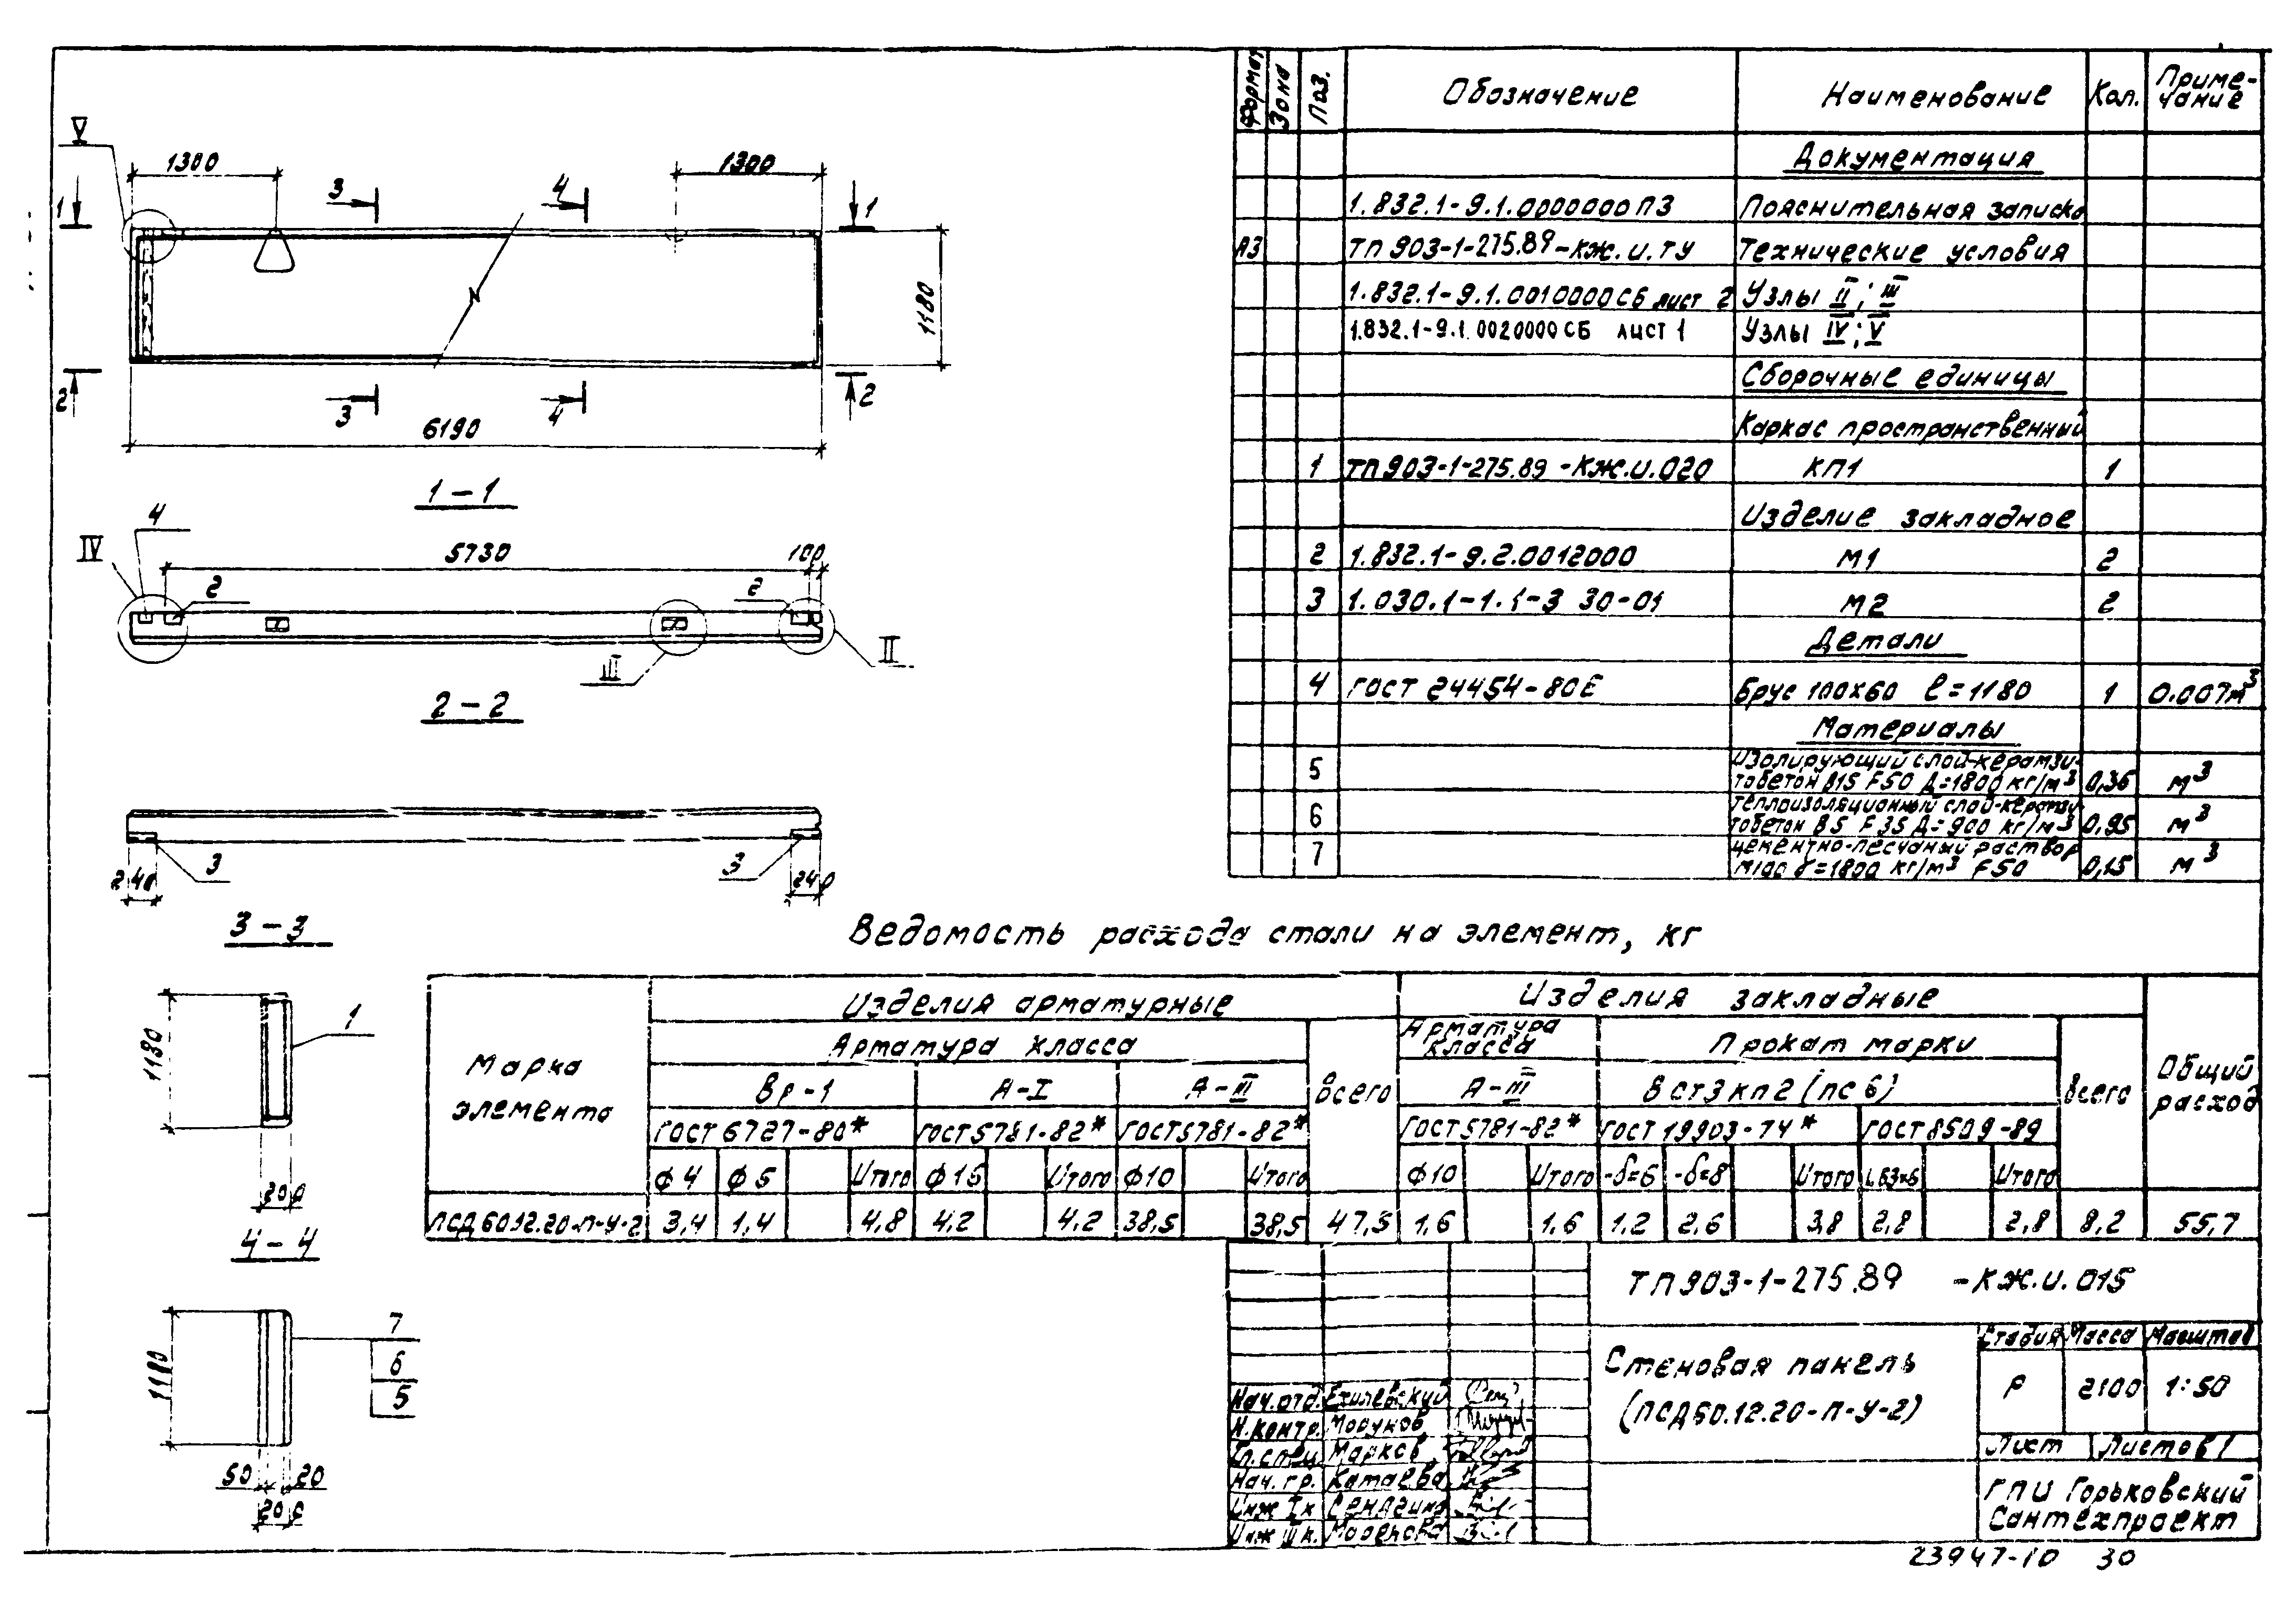 V
1300
1300
3
4
1
1
1180
2
3
4
2
6190
1-1
4
IV
5730
100
2
2
III
II
2-2
3
3
240
240
3-3
1180
1
200
4-4
1180
7
6
5
50
20
200
Формат Зона Поз. Обозначение Наименование Кол. Приме-
чание
Документация
1.832.1-9.1.0000000ПЗ Пояснительная записка
А3 ТП 903-1-275.89-КЖ.И.ТУ Технические условия
1.832.1-9.1.0010000СБ лист 2 Узлы II; III
1.832.1-9.1.0020000СБ лист 1 Узлы IV; V
Сборочные единицы
Каркас пространственный
1 ТП903-1-275.89-КЖ.И.020 КП1 1
Изделие закладное
2 1.832.1-9.2.0012000 М1 2
3 1.030.1-1.1-3 30-01 М2 2
Детали
4 ГОСТ 24454-80Е Брус 100х60 ℓ=1180 1 0.007м³
Материалы
5 Изолирующий слой-керамзи-
тобетон В15 F50 Д=1800 кг/м³ 0,36 м³
6 Теплоизоляционный слой-керамзи-
тобетон В5 F35 Д=900 кг/м³ 0,95 м³
7 цементно-песчаный раствор
М100 γ=1800 кг/м³ F50 0,15 м³
Ведомость расхода стали на элемент, кг
Марка элемента Изделия арматурные Изделия закладные Общий расход
Арматура класса Всего Арматура класса Прокат марки Всего
Вр-1 А-I А-III А-III ВСт3кп2(пс6)
ГОСТ 6727-80* ГОСТ5781-82* ГОСТ5781-82* ГОСТ5781-82* ГОСТ 19903-74* ГОСТ 8509-89
ф4 ф5 Итого ф16 Итого ф10 Итого ф10 Итого -δ=6 -δ=8 Итого L63х6 Итого
ПСД60.12.20-П-У-2 3,4 1,4 4,8 4,2 4,2 38,5 38,5 47,5 1,6 1,6 1,2 2,6 3,8 2,8 2,8 8,2 55,7
ТП903-1-275.89 -КЖ.И.015
Стеновая панель
(ПСД60.12.20-П-У-2)
Стадия Масса Масштаб
Р 2100 1:50
Лист Листов 1
ГПИ Горьковский
Сантехпроект
Нач.отд.
Н.контр.
Гл.спец. Марков
Нач. гр. Катаева
Инж. I к
Инж III к.
23947-10 30